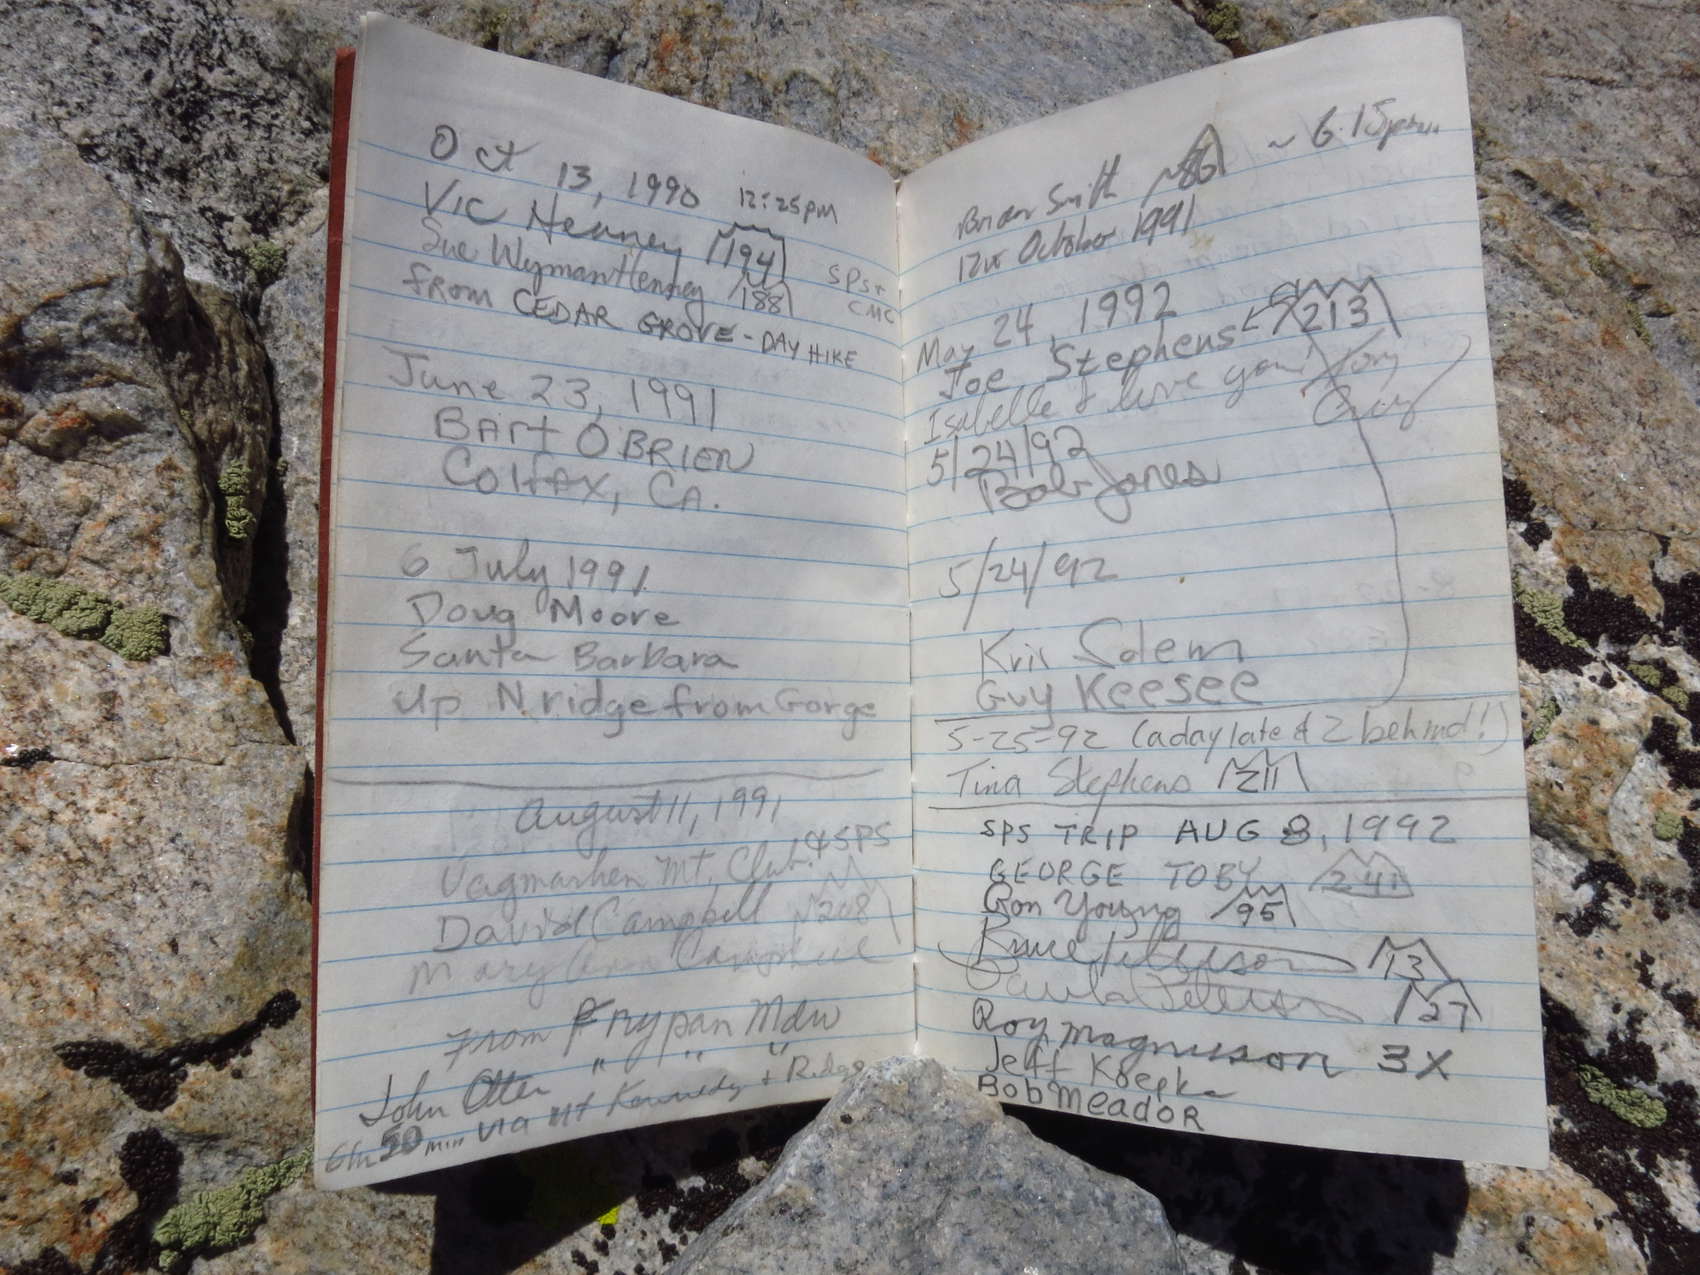 Oct 13, 1990 12:25pm
Vic Henney 194
Sue Wyman Henney 188 SPS +
CMC
from CEDAR GROVE - DAY HIKE
June 23, 1991
BArt O'BRIEN
Colfax, CA.
6 July 1991
Doug Moore
Santa Barbara
Up N ridge from Gorge
August 11, 1991
Mt. Club & SPS
David Campbell 208
Mary Ann Campbell
From Frypan Mdw
" " "
John Otter
6 hr 50 min via Mt Kennedy + Ridge
~ 6:15pm
Brian Smith ~86
12th October 1991
May 24, 1992
Joe Stephens 213
Isabelle I love you!
5/24/92
Bob Jones
5/24/92
Kris Solem
Guy Keesee
5-25-92 (a day late & 2 behind!)
Tina Stephens 211
SPS TRIP AUG 8, 1992
GEORGE TOBY 241
Ron Young 95
Bruce 13
Paula 27
Roy Magnuson 3X
Jeff Koepke
Bob MEADOR